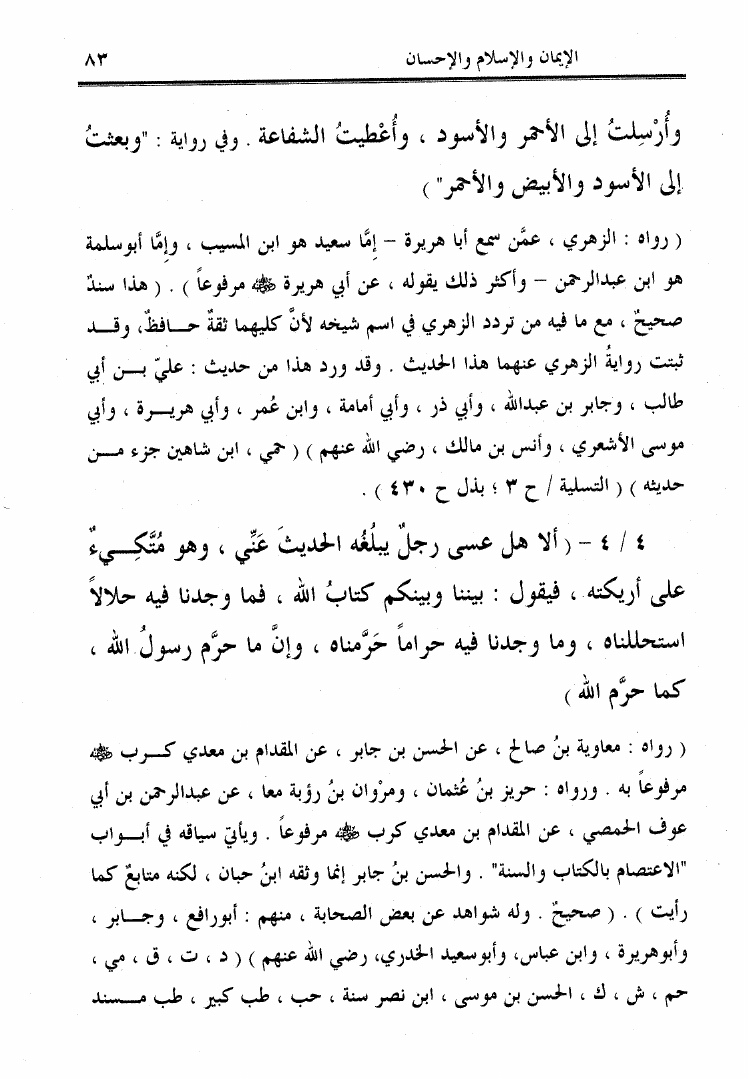 الإيمان والإسلام والإحسان ٨٣
وأُرْسِلتُ إلى الأحمر والأسود ، وأُعْطيتُ الشفاعة . وفي رواية : "وبعثتُ
إلى الأسود والأبيض والأحمر" )
( رواه : الزهري ، عمَّن سمع أبا هريرة – إمَّا سعيد هو ابن المسيب ، وإمَّا أبوسلمة
هو ابن عبدالرحمن – وأكثر ذلك يقوله ، عن أبي هريرة ﷺ مرفوعاً ) . ( هذا سندٌ
صحيحٌ ، مع ما فيه من تردد الزهري في اسم شيخه لأنَّ كليهما ثقةٌ حـــافظٌ، وقـــد
ثبتت روايةُ الزهري عنهما هذا الحديث . وقد ورد هذا من حديث : عليّ بـــن أبي
طالب ، وجابر بن عبدالله ، وأبي ذر ، وأبي أمامة ، وابن عُمر ، وأبي هريـــرة ، وأبي
موسى الأشعري ، وأنس بن مالك ، رضي الله عنهم ) ( حمي ، ابن شاهين جزء مـــن
حديثه ) ( التسلية / ح ٣ ؛ بذل ح ٤٣٠ ) .
٤ / ٤ – ( ألا هل عسى رجلٌ يبلُغُه الحديثَ عَنِّي ، وهو مُتَّكِـــيءٌ
على أريكته ، فيقول : بيننا وبينكم كتابُ الله ، فما وجدنا فيه حلالاً
استحللناه ، وما وجدنا فيه حراماً حَرَّمناه ، وإنَّ ما حرَّم رسولُ الله ،
كما حرَّم الله )
( رواه : معاوية بنُ صالح ، عن الحسن بن جابر ، عن المقدام بن معدي كـــرب ﷺ
مرفوعاً به . ورواه : حريز بنُ عُثمان ، ومرْوان بنُ رؤبة معا ، عن عبدالرحمن بن أبي
عوف الحمصي ، عن المقدام بن معدي كرب ﷺ مرفوعاً . ويأتي سياقه في أبـــواب
"الاعتصام بالكتاب والسنة" . والحسن بنُ جابر إنما وثقه ابنُ حبان ، لكنه متابعٌ كما
رأيت ) . ( صحيحٌ . وله شواهد عن بعض الصحابة ، منهم : أبورافع ، وجـــابر ،
وأبوهريرة ، وابن عباس، وأبوسعيد الخدري، رضي الله عنهم ) ( د ، ت ، ق ، مي ،
حم ، ش ، ك ، الحسن بن موسى ، ابن نصر سنة ، حب ، طب كبير ، طب مـــسند